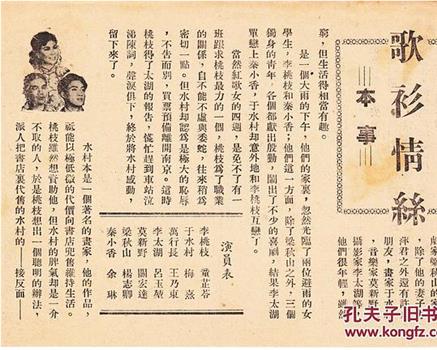 歌衫情絲
本事
除了他的妻子
萍君之外還有許
朋友，畫家于水
，音樂家莫新野
攝影家李太湖等
他們很年輕，雖
窮，但生活得相當有趣。
是一個大雨的下午，他們的家裏，忽然光臨了兩位避雨的女
學生，李桃枝和秦小香，他們這一方面，除了梁秋山之外，三個
獨身的青年，各個都獻出殷勤，鬧出了不少的喜劇，結果李太湖
單戀上秦小香，于水村却意外地和李桃枝互戀了。
當然紅歌女的四週，是免不了有一
班跟求桃枝最力的一個，桃枝爲了職業
的關係，自不能不虛與委蛇，往來稍爲
密切一點。但水村却認爲是極大的恥辱
，不告而別，買票預備離開南京。這時
桃枝得了太湖的報告，慌忙趕到車站泣
涕陳詞，聲淚俱下，終於將水村感動，
留下來了。
演員表
李桃枝 童芷苓
于水村 梅熹
萬行長 王乃東
李太湖 呂玉堃
莫新野 關宏達
梁秋山 楊志卿
秦小香 余琳
水村本是一個著名的畫家，他的作品，
祗能以極低微的代價向書店兜售維持生活。
桃枝雖然想資助他，但水村的脾氣却是一介
不取的人，於是桃枝想出一個聰明的辦法，
派人把書店裏代售的水村的——接反面——
孔夫子旧书网
www.kongfz.com